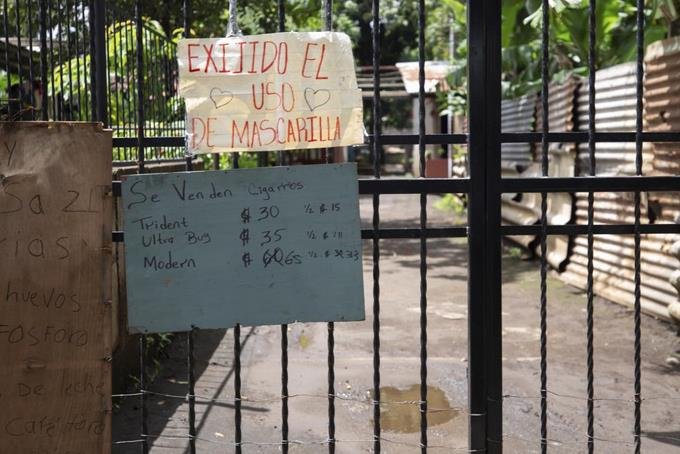 EXIJIDO EL
USO
DE MASCARILLA
Se Venden Cigarros
Trident $ 30 ½ $ 15
Ultra Buy $ 35 ½ $
Modern $ 65 ½ $ 33
y
Sazz
huevos
FOSFORO
De leche
Café